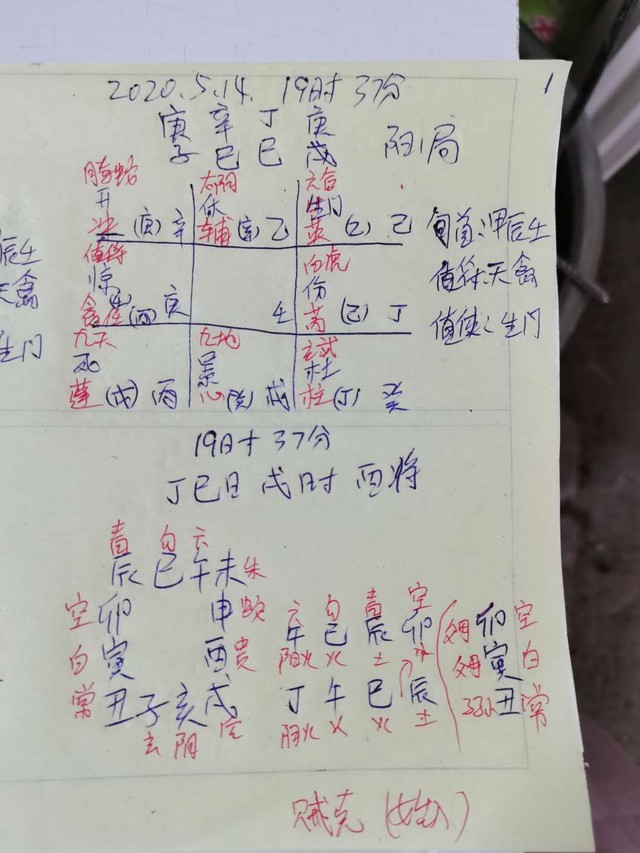 2020.5.14. 19时37分 1
庚 辛 丁 庚
子 巳 巳 戌 阳1局
腾蛇 太阴 六合
开 休 生门
冲 (庚) 辛 辅 (辛) 乙 英 (乙) 己 旬首:甲辰壬
值符 白虎 值符:天禽
惊 伤
禽 (丙) 庚 壬 芮 (己) 丁 值使:生门
九天 九地 玄武
死 景 杜
蓬 (戊) 丙 心 (癸) 戊 柱 (丁) 癸
辰壬
天禽
生门
19时37分
丁巳日 戌时 酉将
青 白 六
辰 巳 午 未 朱
空 卯 申 蛇
白 寅 酉 贵
常 丑 子 亥 戌
玄 阴
六 白 青 空
午 巳 辰 卯
阳火 火 土
丁 午 巳 辰
阴火 火 火 土
卯 空
寅 白
丑 常
贼克